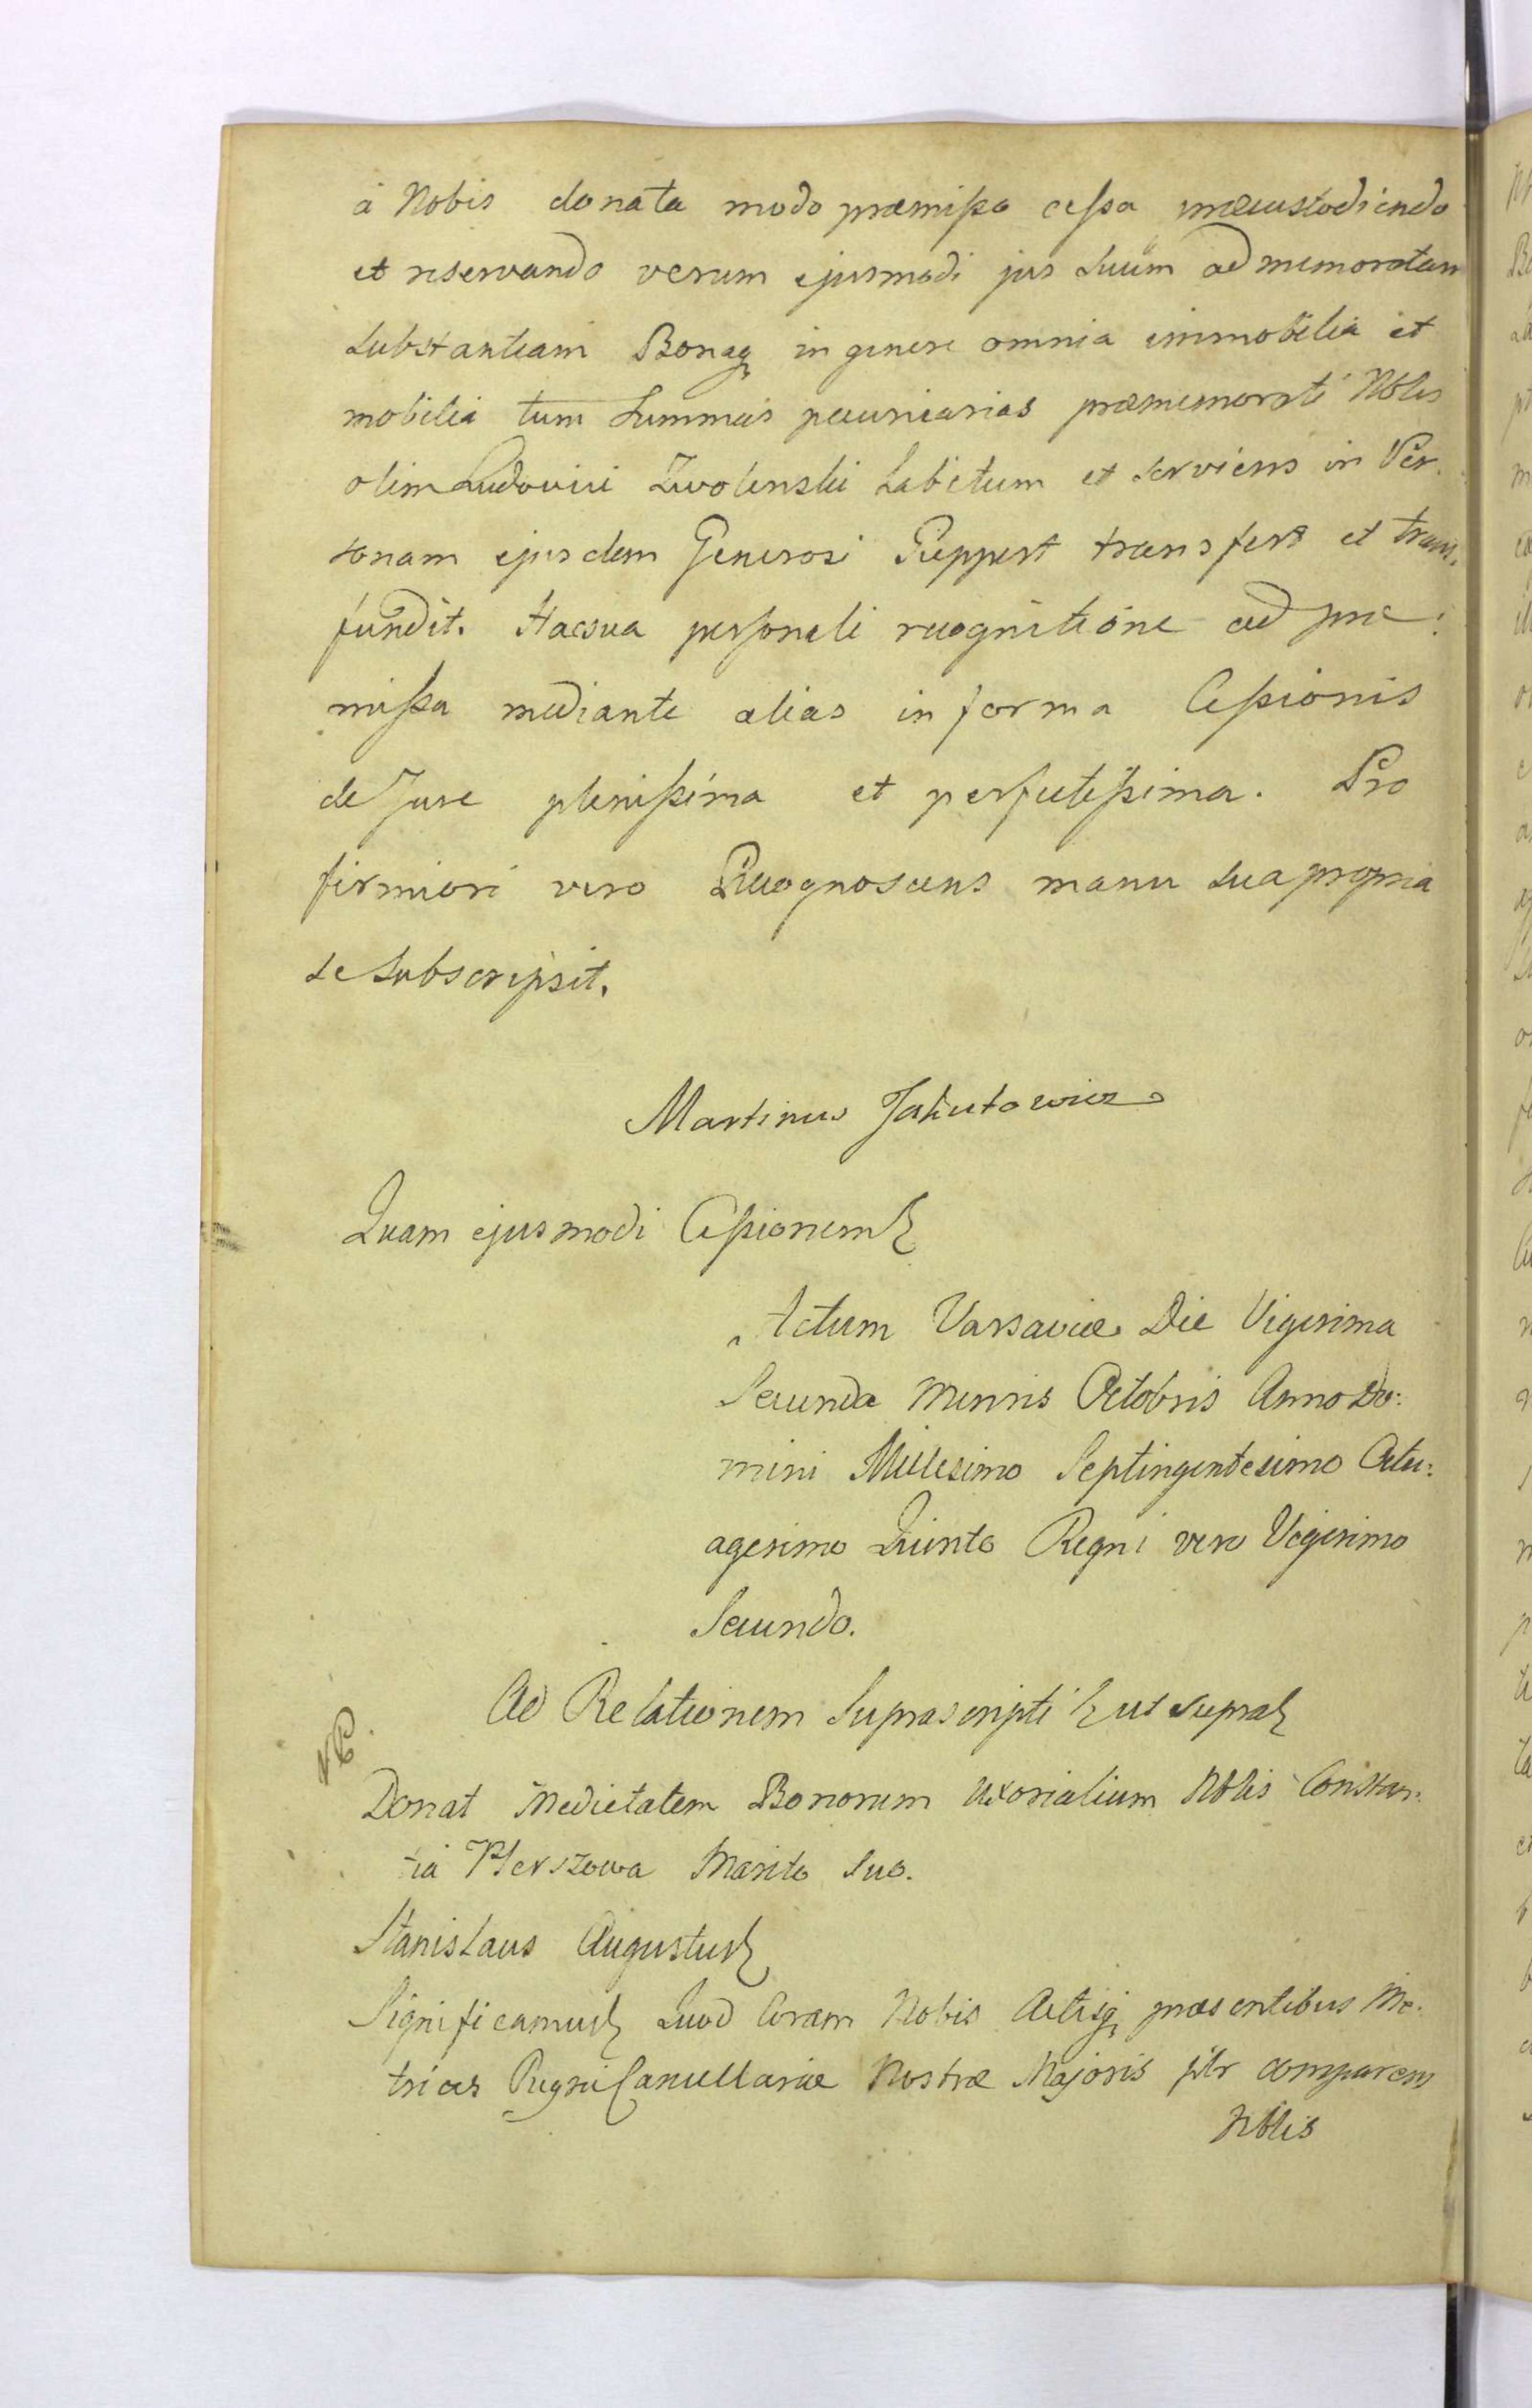 á Nobis donata modo præmissa cessa præcustodiendo
et reservando verum ejusmodi jus suum ad memoratam
Substantiam Bonaq in genere omnia immobilia et
mobilia tum Summas pecuniarias præmemorati Nblis
olim Ludovici Zwolenski habitum et serviens in Per.
sonam ejusdem Generosi Pieppert transfert et trans.
fundit. Hac sua personali recognitione ad præ:
missa mediante alias in forma Cessionis
de Jure plenissima et perfectissima. Pro
firmiori vero Recognoscens manu sua propria
se subscripsit.
Martinus Jakutowicz
Quam ejusmodi Cessionem
Actum Varsaviæ Die Vigesima
Secunda Mensis Octobris Anno Do:
mini Millesimo Septingentesimo Octu:
agesimo Quinto Regni vero Vigesimo
Secundo.
Ad Relationem Suprascripti ut supra
Donat Medietatem Bonorum Uxorialium Nblis Constan:
tia Pierszowa Marito Suo.
Stanislaus Augustus
Significamus Quod Coram Nobis Actisq præsentibus Me.
trices Regni Cancellariæ Nostræ Majoris pltr comparens
Nblis